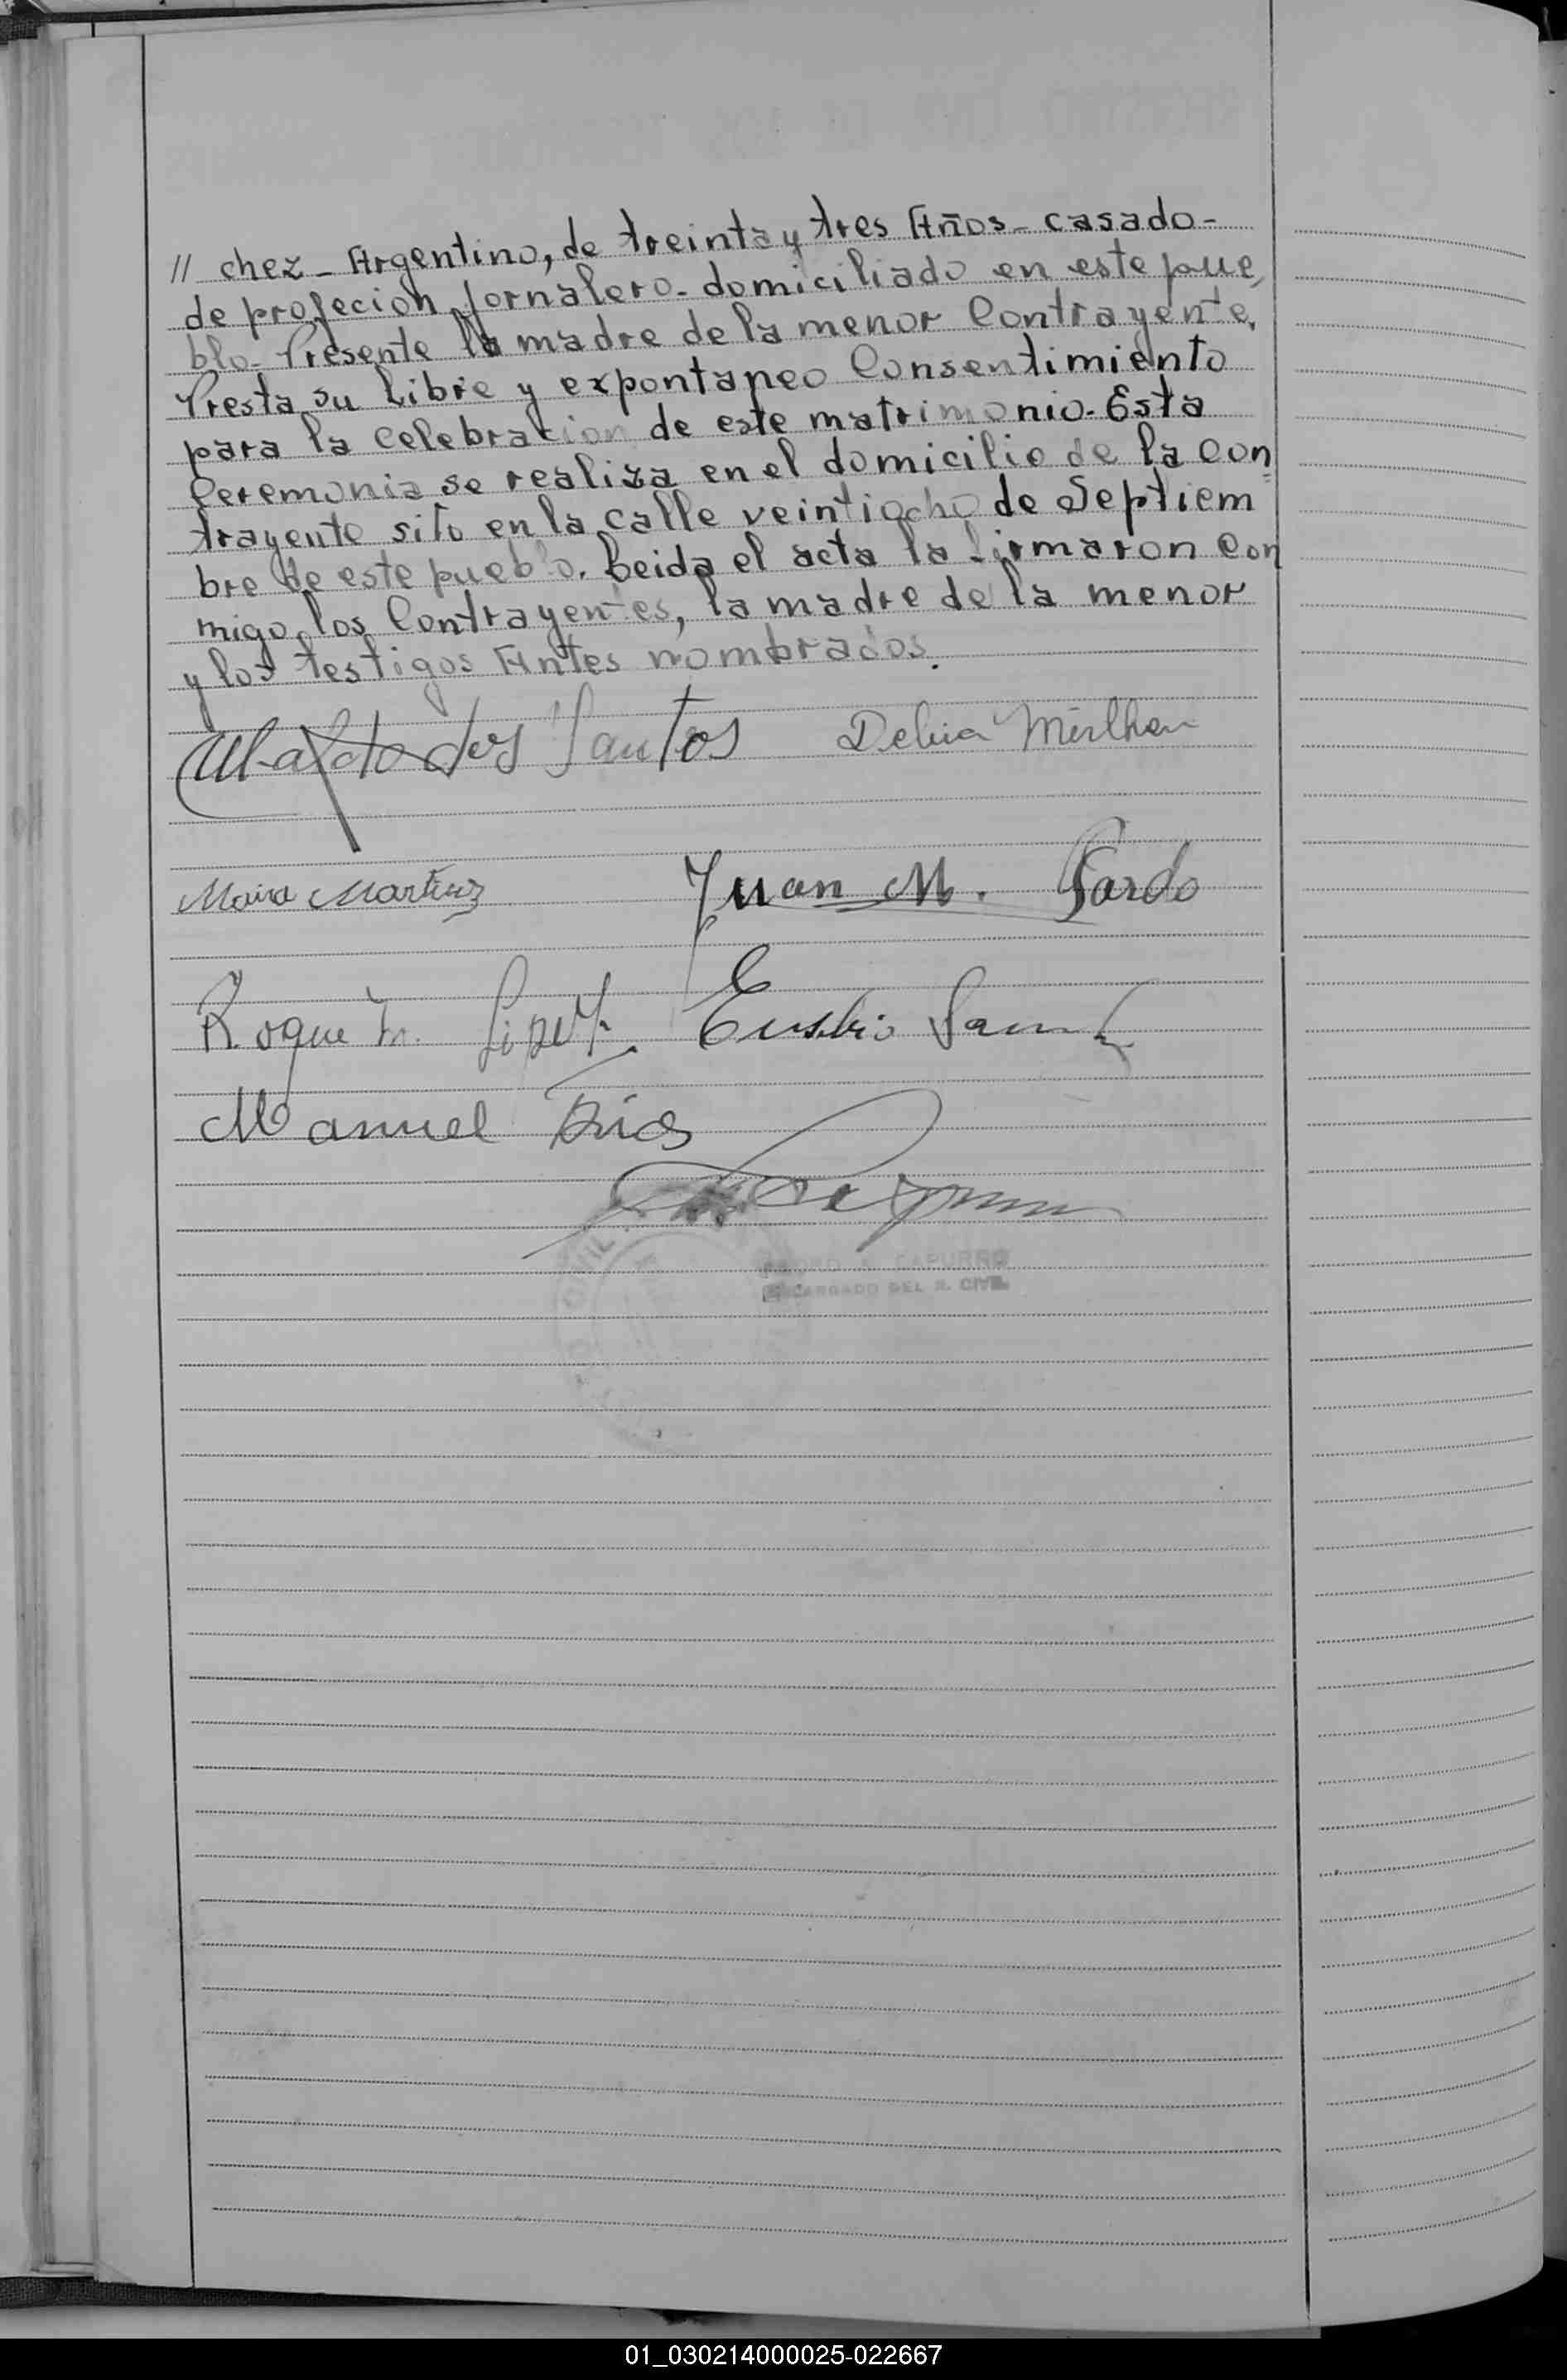 // chez - Argentino, de treinta y tres Años - casado -
de profecion Jornalero - domiciliado en este pue
blo - Presente la madre de la menor Contrayente,
Presta su Libre y expontaneo Consentimiento
para la Celebracion de este matrimonio. Esta
Ceremonia se realiza en el domicilio de la Con
trayente sito en la calle veintiocho de Septiem
bre de este pueblo. Leida el acta la firmaron Con
migo, los Contrayentes, la madre de la menor
y los testigos Antes nombrados.
Ubaldo dos Santos Delia
Maria Martinez Juan M. Pardo
Roque Eusebio
Manuel Rios
CAPURRO
ENCARGADO DEL R. CIVIL
01_030214000025-022667